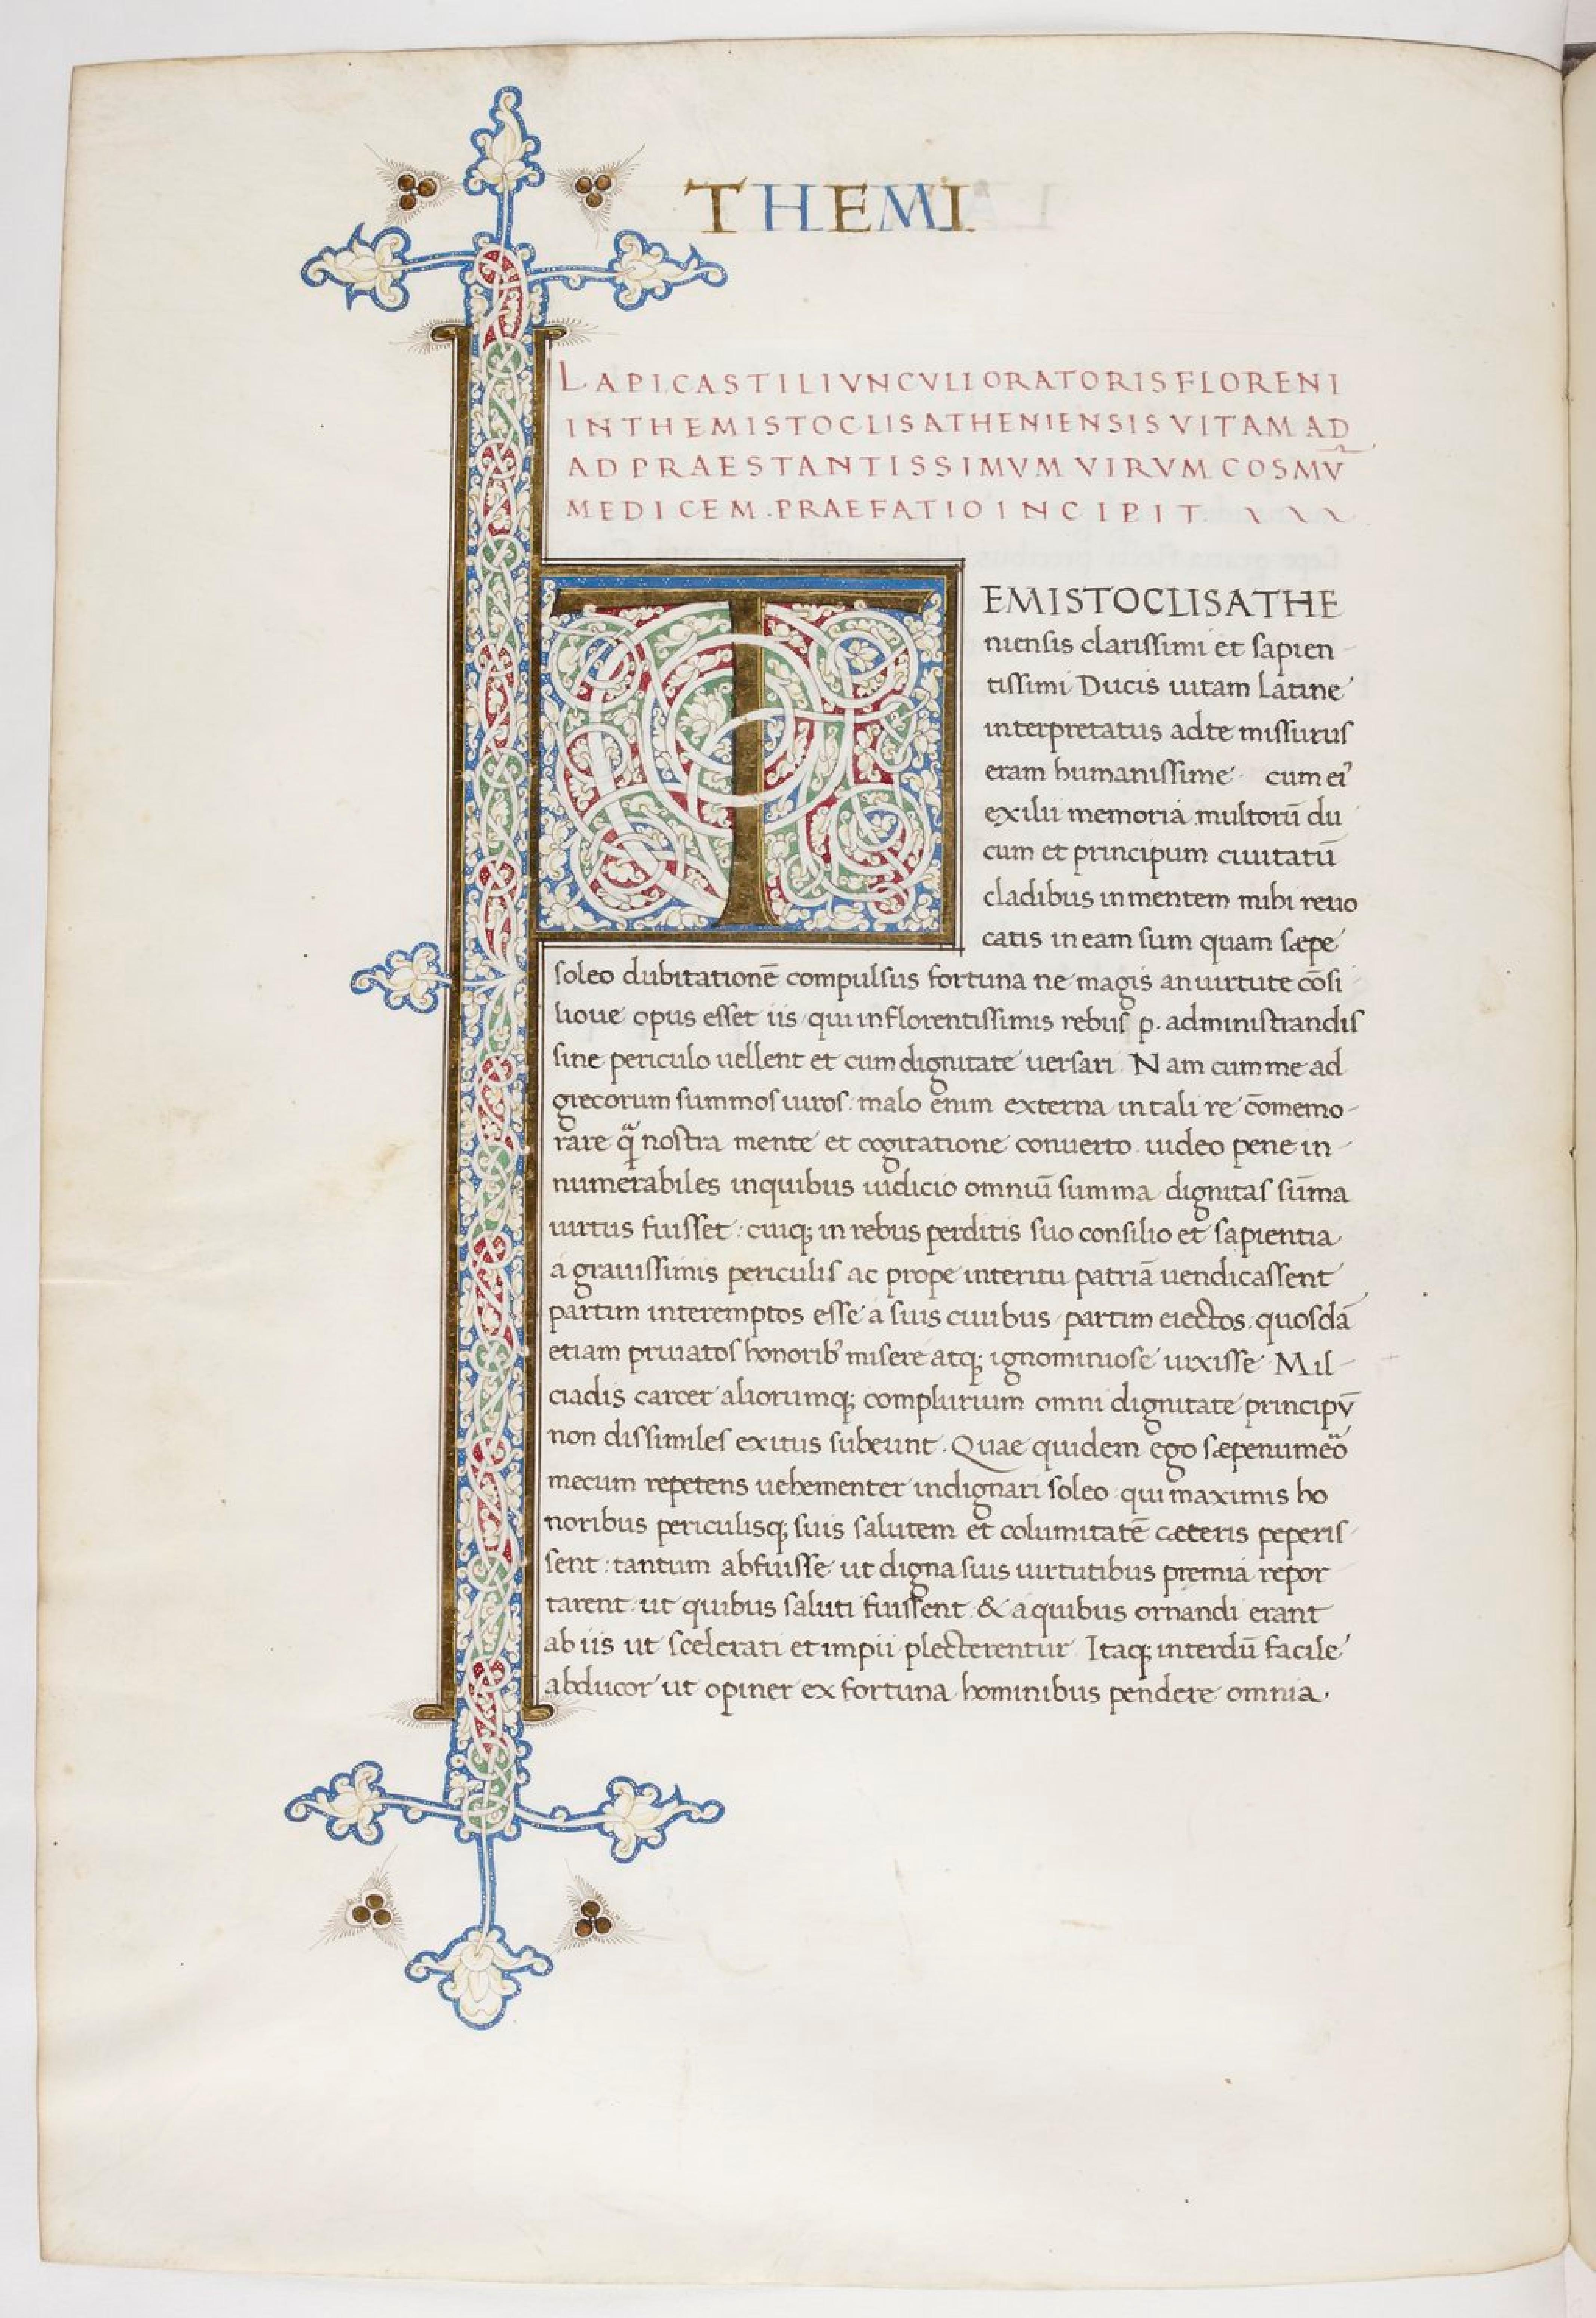 THEMI
LAPI CASTILIVNCVLI ORATORIS FLORENI
IN THEMISTOCLIS ATHENIENSIS VITAM AD
AD PRAESTANTISSIMVM VIRVM COSMV̅
MEDICEM. PRAEFATIO INCIPIT.
T EMISTOCLIS ATHE
niensis clarissimi et sapien-
tissimi Ducis uitam Latine
interpretatus ad te missurus
eram humanissime cum ei
exilii memoria multorū du
cum et principum ciuitatū
cladibus in mentem mihi reuo
catis in eam sum quam sæpe
soleo dubitationē compulsus fortuna ne magis an uirtute cōsi
lioue opus esset iis qui in florentissimis rebus p. administrandis
sine periculo uellent et cum dignitate uersari. Nam cum me ad
grecorum summos uiros. malo enim externa in tali re cōmemo-
rare q̃ nostra mente et cogitatione conuerto. uideo pene in-
numerabiles in quibus iudicio omniū summa dignitas sūma
uirtus fuisset: cuiq; in rebus perditis suo consilio et sapientia
a grauissimis periculis ac prope interitu patriā uendicassent
partim interemptos esse a suis ciuibus partim eiectos: quosdā
etiam priuatos honorib' misere atq; ignominiose uixisse. Mil-
ciadis carcer aliorumq; complurium omni dignitate principv̄
non dissimiles exitus subeunt. Quae quidem ego sæpenumeo
mecum repetens uehementer indignari soleo qui maximis ho
noribus periculisq; suis salutem et columitatē cæteris peperis-
sent: tantum abfuisse ut digna suis uirtutibus premia repor
tarent. ut quibus saluti fuissent & a quibus ornandi erant
ab iis ut scelerati et impii plecterentur. Itaq; interdū facile
abducor ut opiner ex fortuna hominibus pendere omnia.